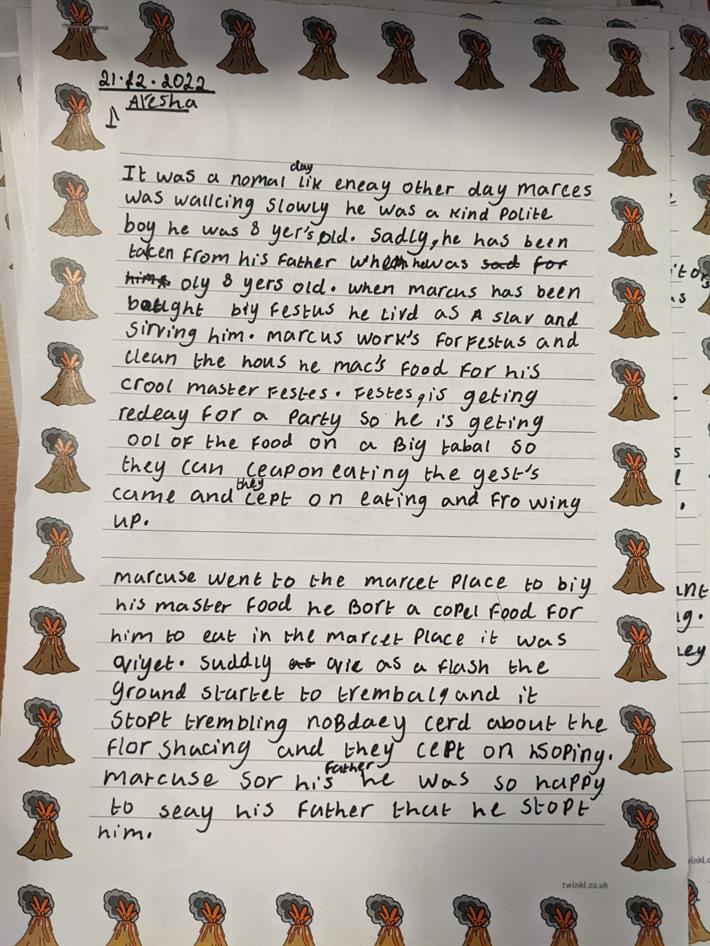 21.12.2022
Alesha
It was a nomal day lik eneay other day marces
was wallcing slowly he was a kind Polite
boy he was 8 yer's old. Sadly, he has been
taken from his father when he was sad for
him oly 8 yers old. when marcus has been
bought biy Festus he livd as A slav and
Sirving him. marcus work's for Festus and
clean the hous he mac's food for his
crool master Festes. Festes, is geting
redeay for a Party so he is geting
ool of the food on a Big tabal so
they can ceapon eating the gest's
came and they cept on eating and fro wing
up.
marcuse went to the marcet Place to biy
his master food he Bort a copel food for
him to eat in the marcet Place it was
qviyet. suddly as qvic as a flash the
ground startet to trembal, and it
stopt trembling noBdaey cerd about the
flor shacing and they cept on hsoping.
marcuse sor his father he was so happy
to seay his father that he stopt
him.
twinkl.co.uk